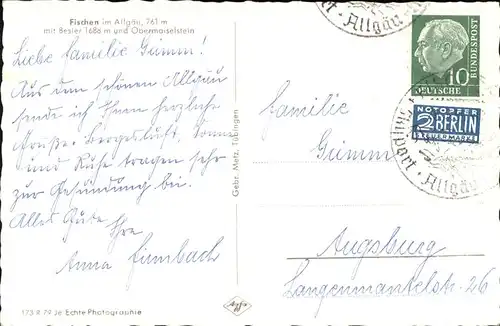 Fischen im Allgäu, 761 m
mit Besler 1686 m und Obermaiselstein
Liebe Familie Grimm!
Aus dem schönen Allgäu
sende ich Ihnen herzliche
Grüße. Bergesluft, Sonne
und Ruhe tragen sehr
zur Gesundung bei.
Alles Gute Ihre
Anna
173 R 79 Je Echte Photographie
Gebr. Metz, Tübingen
Allgäu
10
DEUTSCHE
BUNDESPOST
NOTOPFER
2 BERLIN
STEUERMARKE
Allgäu
Familie
Grimm
Augsburg
Langenmantelstr. 26